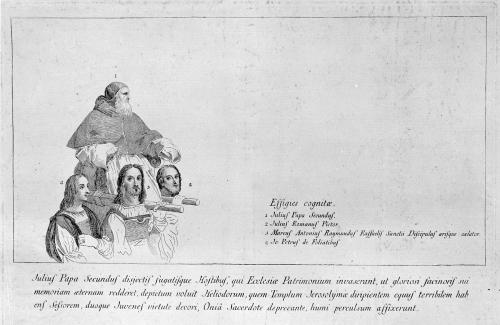 1
2
3
4
Effigies cognitæ.
1 Julius Papa Secundus.
2 Julius Romanus Pictor.
3 Marcus Antonius Raymundus Raffaelis Sanctii Discipulus ærisque cælator.
4 Jo Petrus de Foliatibus
Julius Papa Secundus disjectis fugatisque Hostibus, qui Ecclesiæ Patrimonium invaserant, ut gloriosi facinoris sui
memoriam æternam redderet, depictum voluit Heliodorum, quem Templum Jerosolymæ diripientem equus terribilem hab
ens Sessorem, duoque Juvenes virtute decori, Oniâ Sacerdote deprecante, humi perculsum affixerunt.